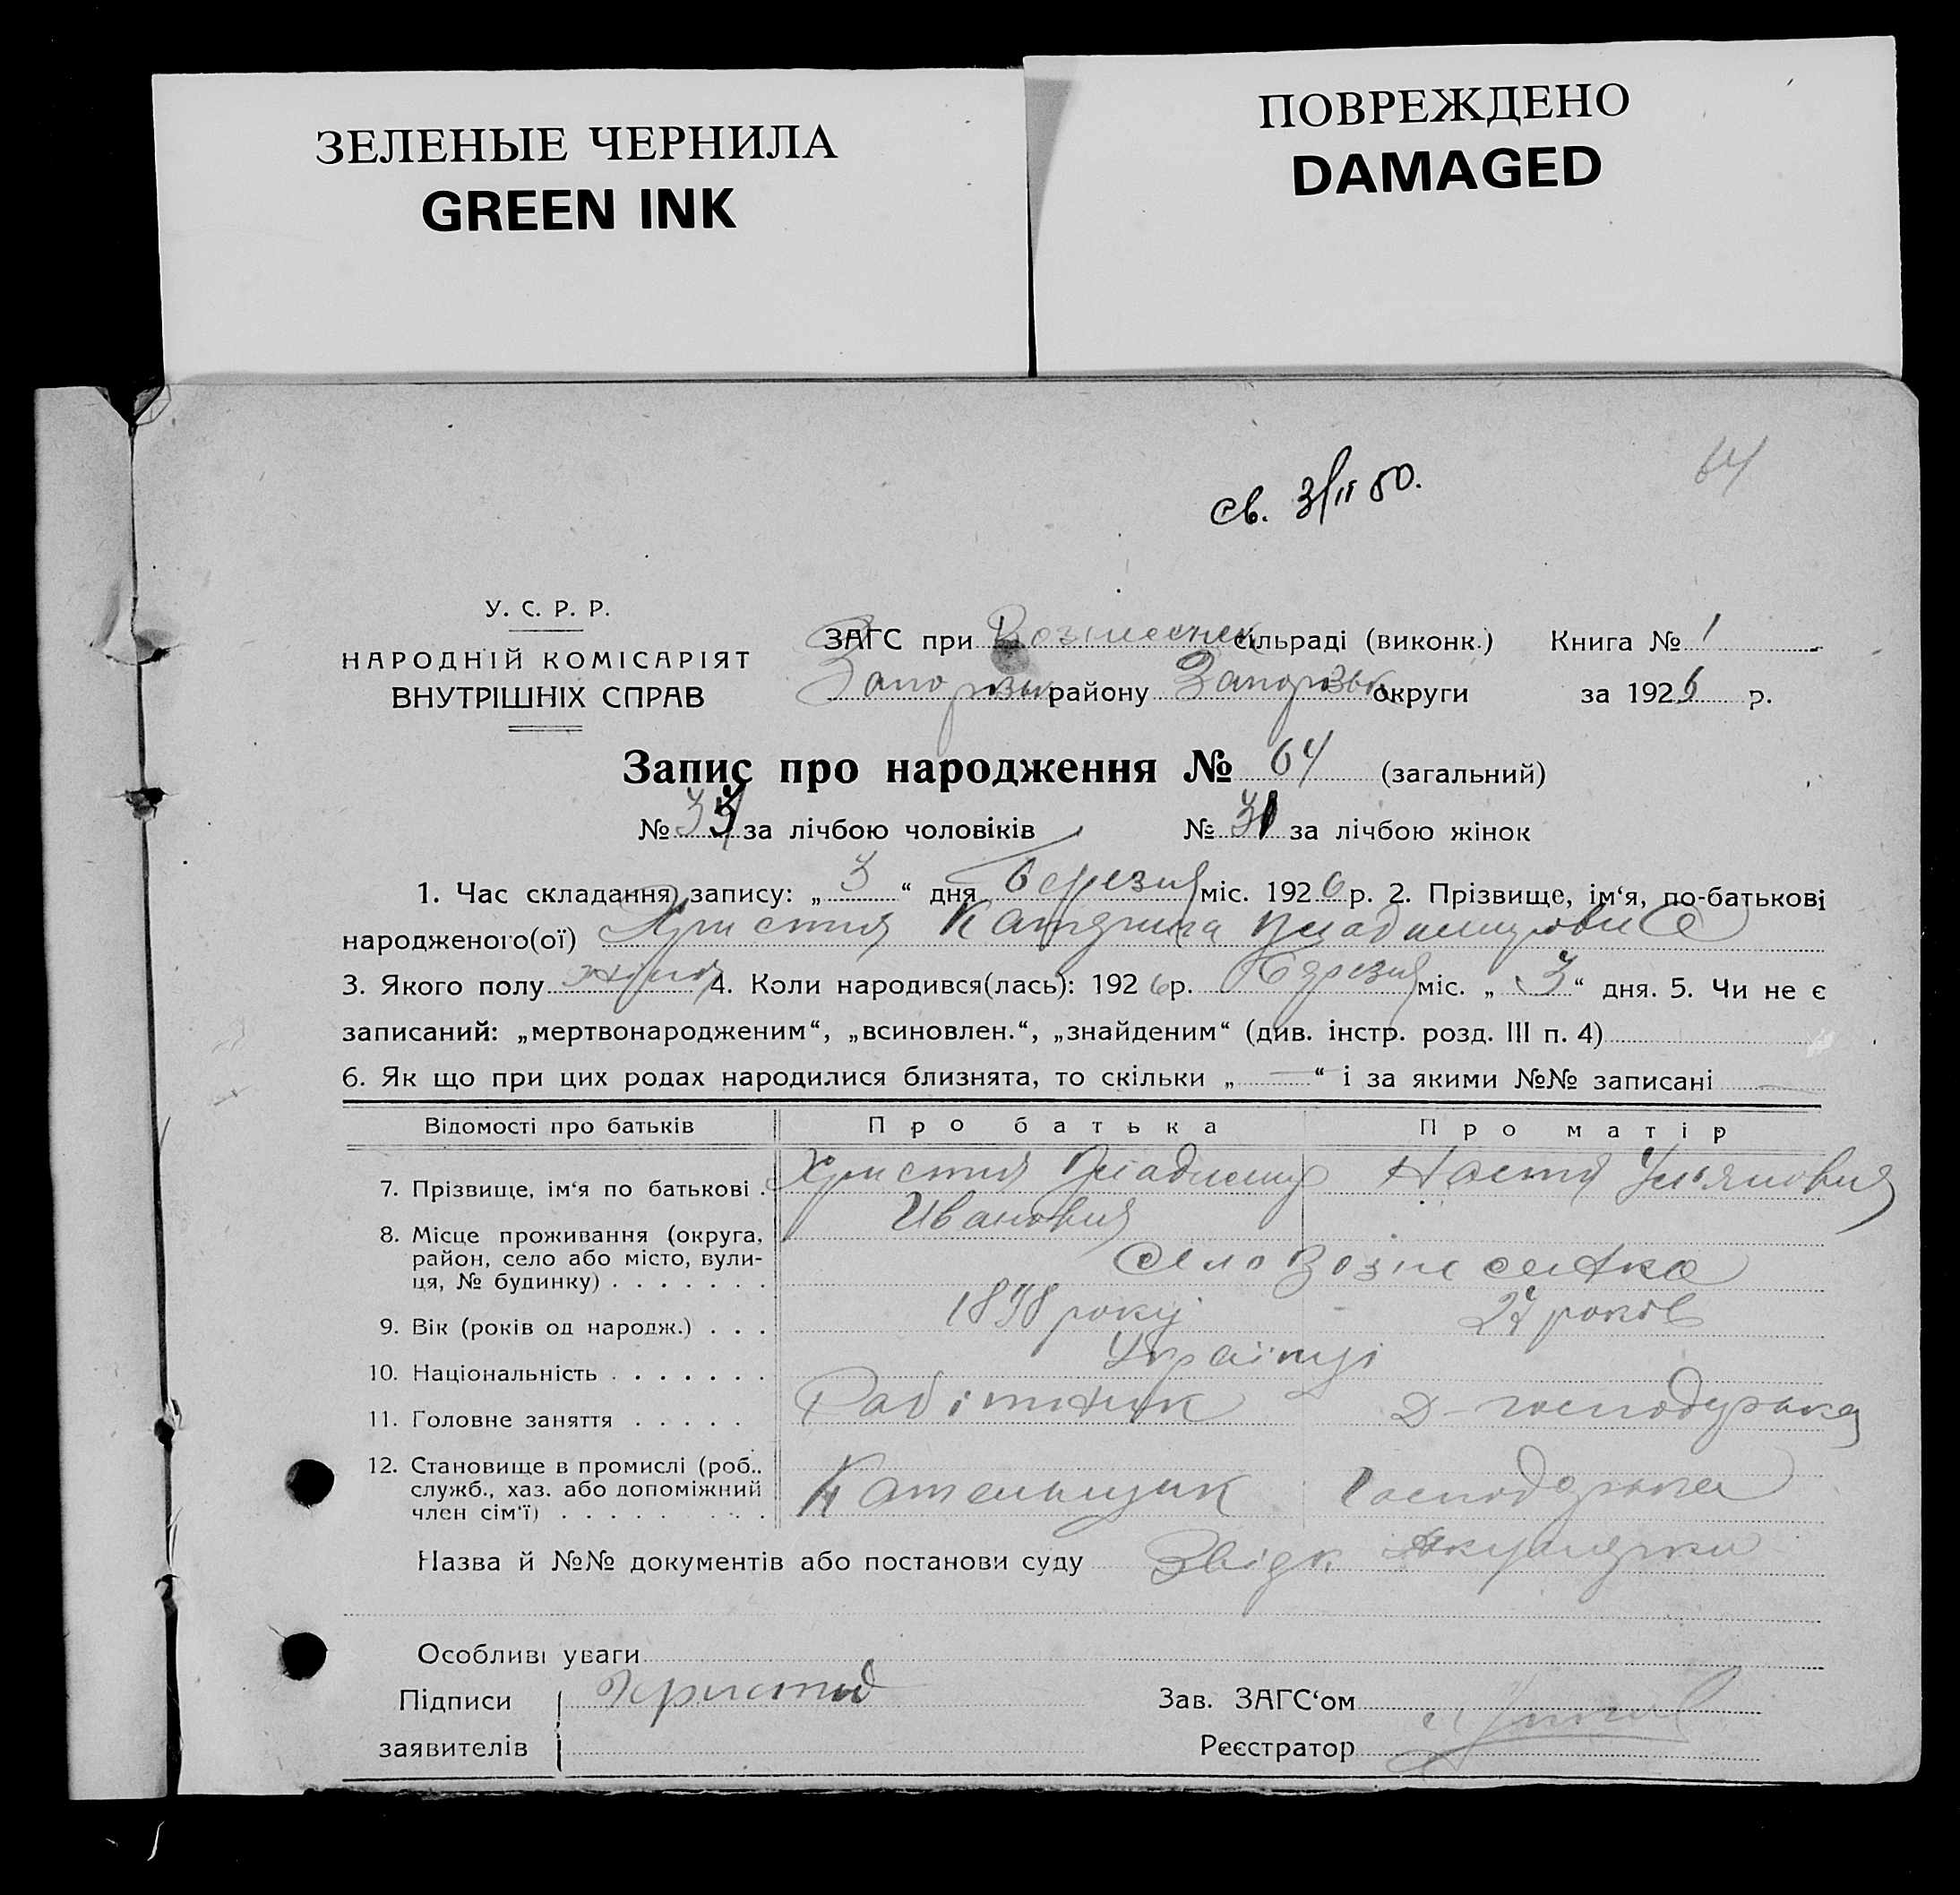 ЗЕЛЕНЫЕ ЧЕРНИЛА
GREEN INK
ПОВРЕЖДЕНО
DAMAGED
64
св. 3/II 50.
У. С. Р. Р.
НАРОДНІЙ КОМІСАРІЯТ
ВНУТРІШНІХ СПРАВ
ЗАГС при Вознесенск сільраді (виконк.) Книга № 1
Запорізьк району Запорізьк округи за 1926 р.
Запис про народження № 64 (загальний)
№ 33 за лічбою чоловіків № 31 за лічбою жінок
1. Час складання запису: „ 3 “ дня березня міс. 1926 р. 2. Прізвище, ім‘я, по-батькові
народженого(ої) Христия Катярина
3. Якого полу 4. Коли народився(лась): 1926 р. Бярезня міс. „ 3 “ дня. 5. Чи не є
записаний: „мертвонародженим“, „всиновлен.“, „знайденим“ (див. інстр. розд. III п. 4)
6. Як що при цих родах народилися близнята, то скільки „ — “ і за якими №№ записані —
Відомості про батьків Про батька Про матір
7. Прізвище, ім‘я по батькові . Христия Настя
Ивановия
8. Місце проживання (округа,
район, село або місто, вули-
ця, № будинку) . . . . . . . село Вознесенка
9. Вік (років од народж.) . . . 1898 року 27 років
10. Національність . . . . . . . Українці
11. Головне заняття . . . . . Робітник Д-господарка
12. Становище в промислі (роб.,
служб., хаз. або допоміжний
член сім‘ї) . . . . . . . . . Кательщик Господарка
Назва й №№ документів або постанови суду Звідк Акушярки
Особливі уваги
Підписи Христид Зав. ЗАГС‘ом
заявителів Реєстратор